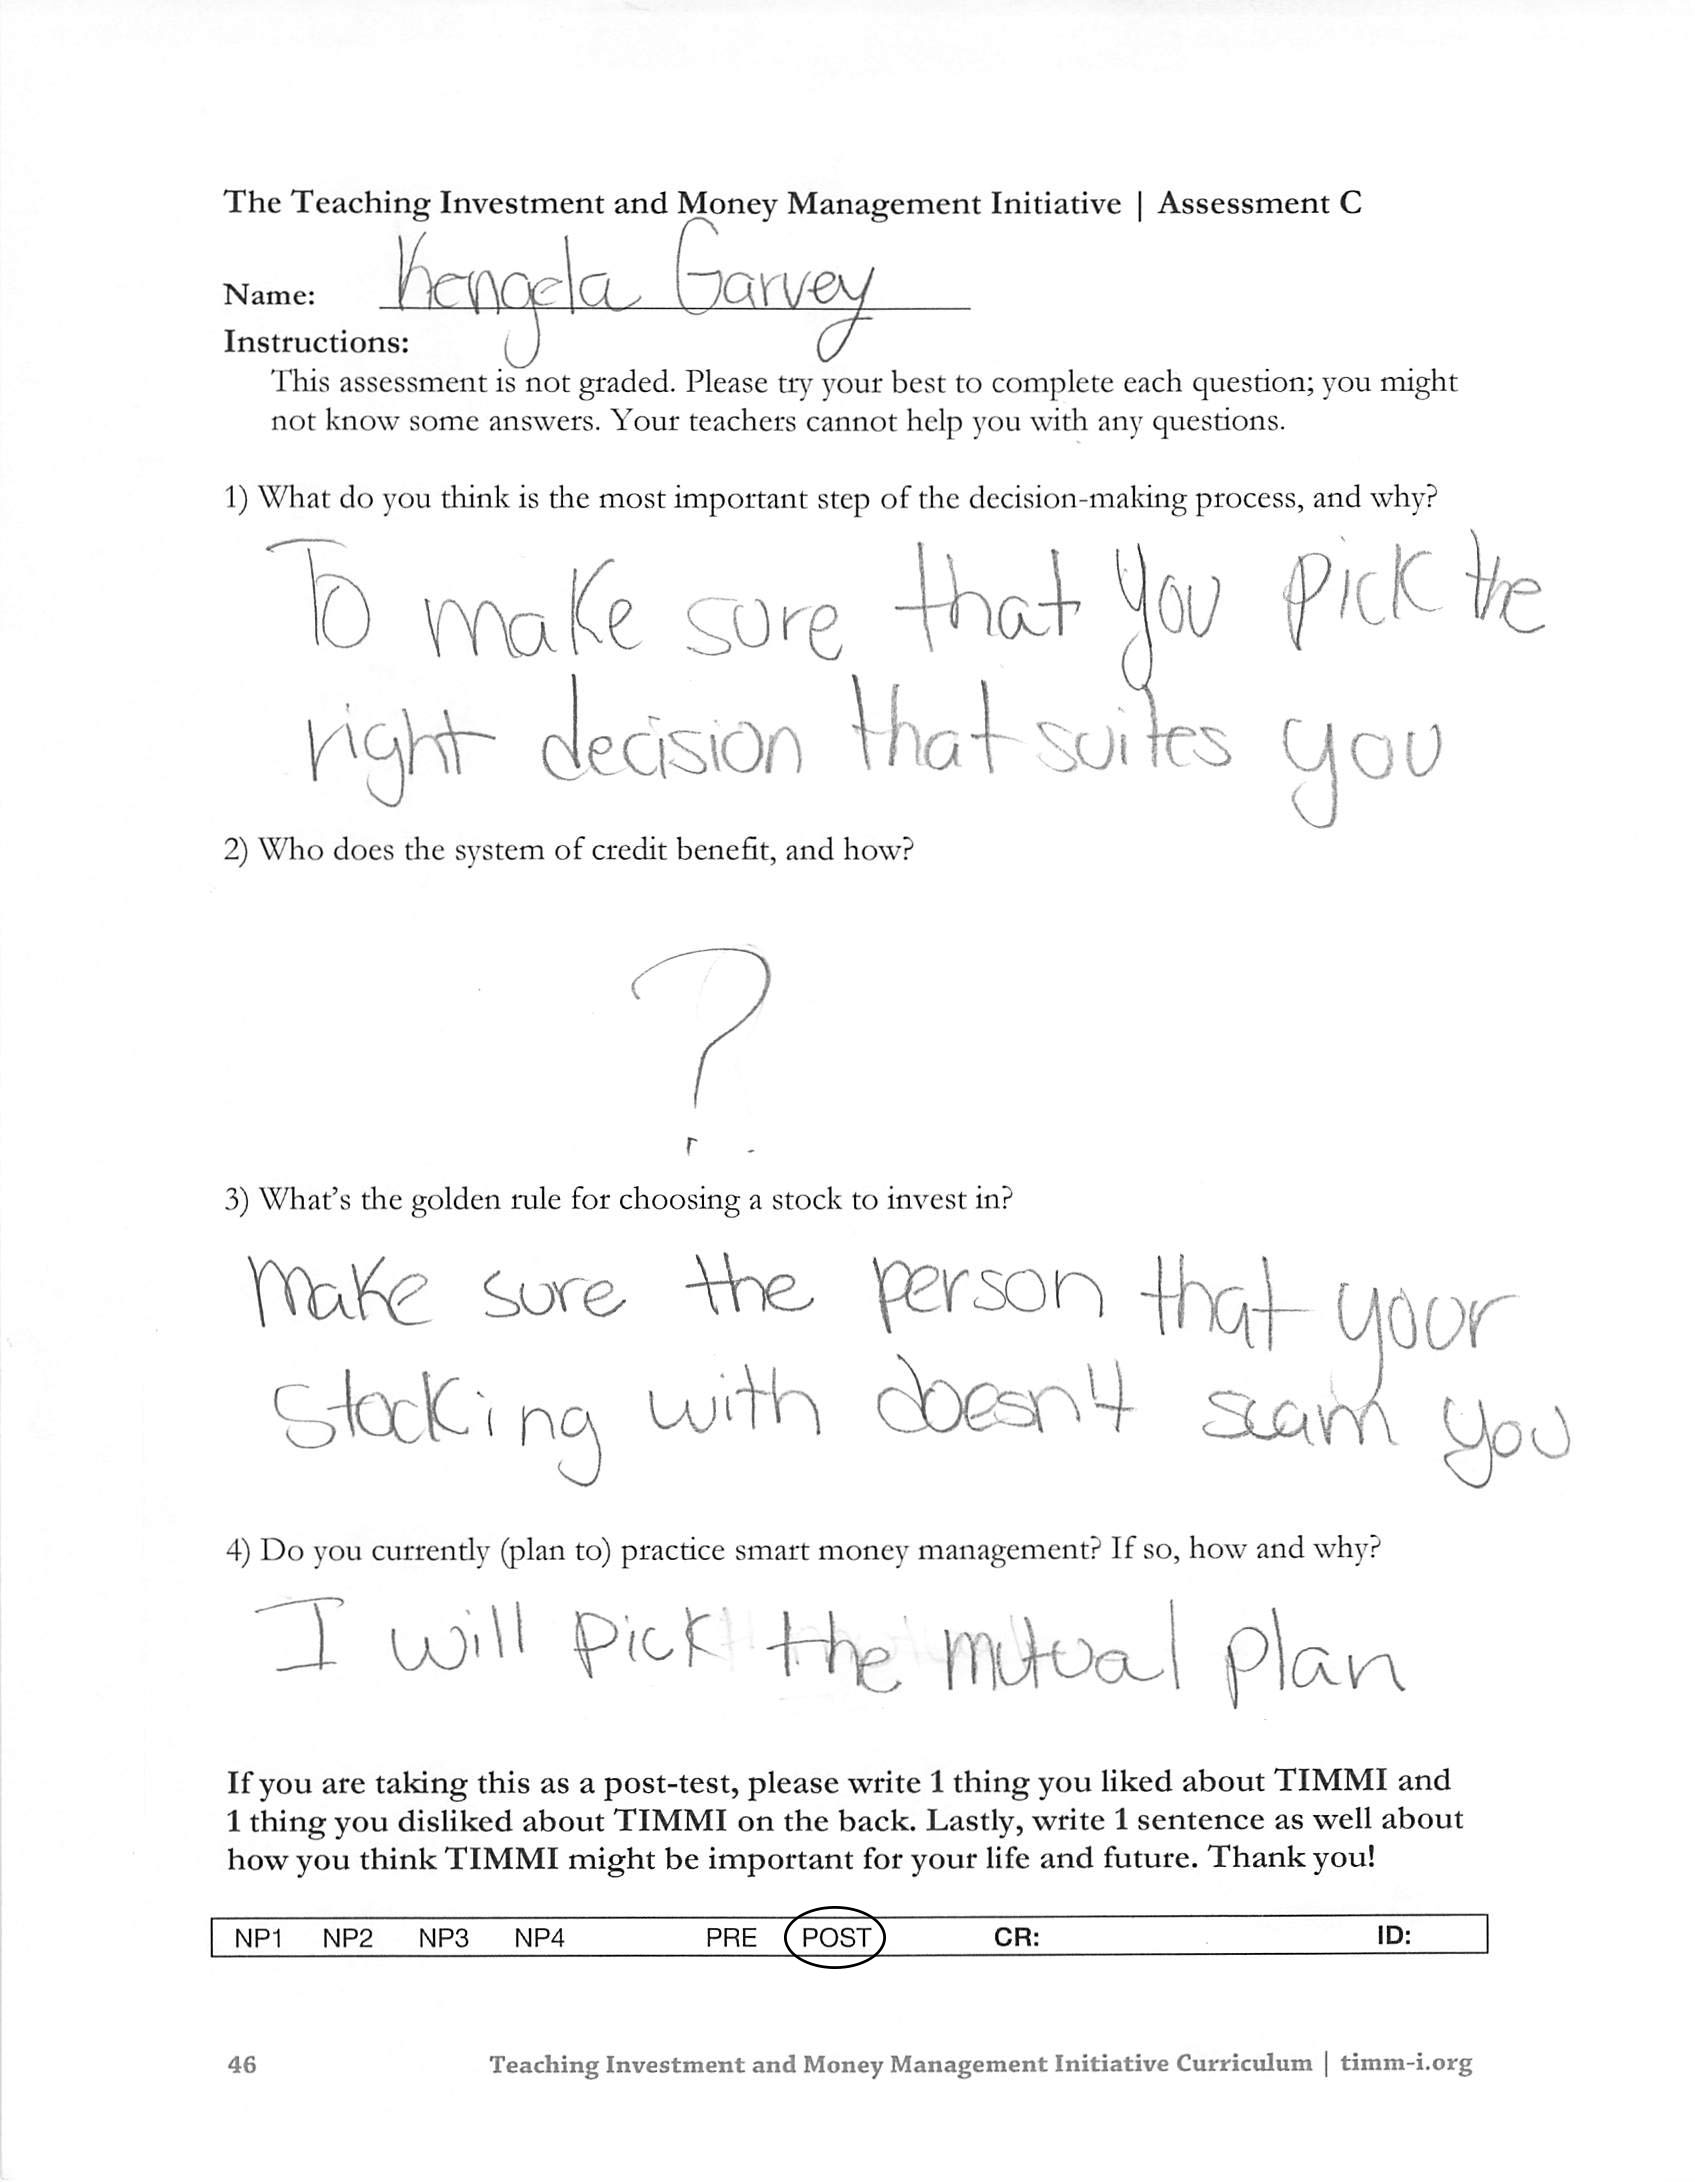 The Teaching Investment and Money Management Initiative | Assessment C
Name: Kengela Garvey
Instructions:
This assessment is not graded. Please try your best to complete each question; you might
not know some answers. Your teachers cannot help you with any questions.
1) What do you think is the most important step of the decision-making process, and why?
To make sure that you pick the
right decision that suites you
2) Who does the system of credit benefit, and how?
?
3) What's the golden rule for choosing a stock to invest in?
Make sure the person that your
stocking with doesn't scam you
4) Do you currently (plan to) practice smart money management? If so, how and why?
I will pick the mutual plan
If you are taking this as a post-test, please write 1 thing you liked about TIMMI and
1 thing you disliked about TIMMI on the back. Lastly, write 1 sentence as well about
how you think TIMMI might be important for your life and future. Thank you!
NP1 NP2 NP3 NP4 PRE POST CR: ID:
46 Teaching Investment and Money Management Initiative Curriculum | timm-i.org